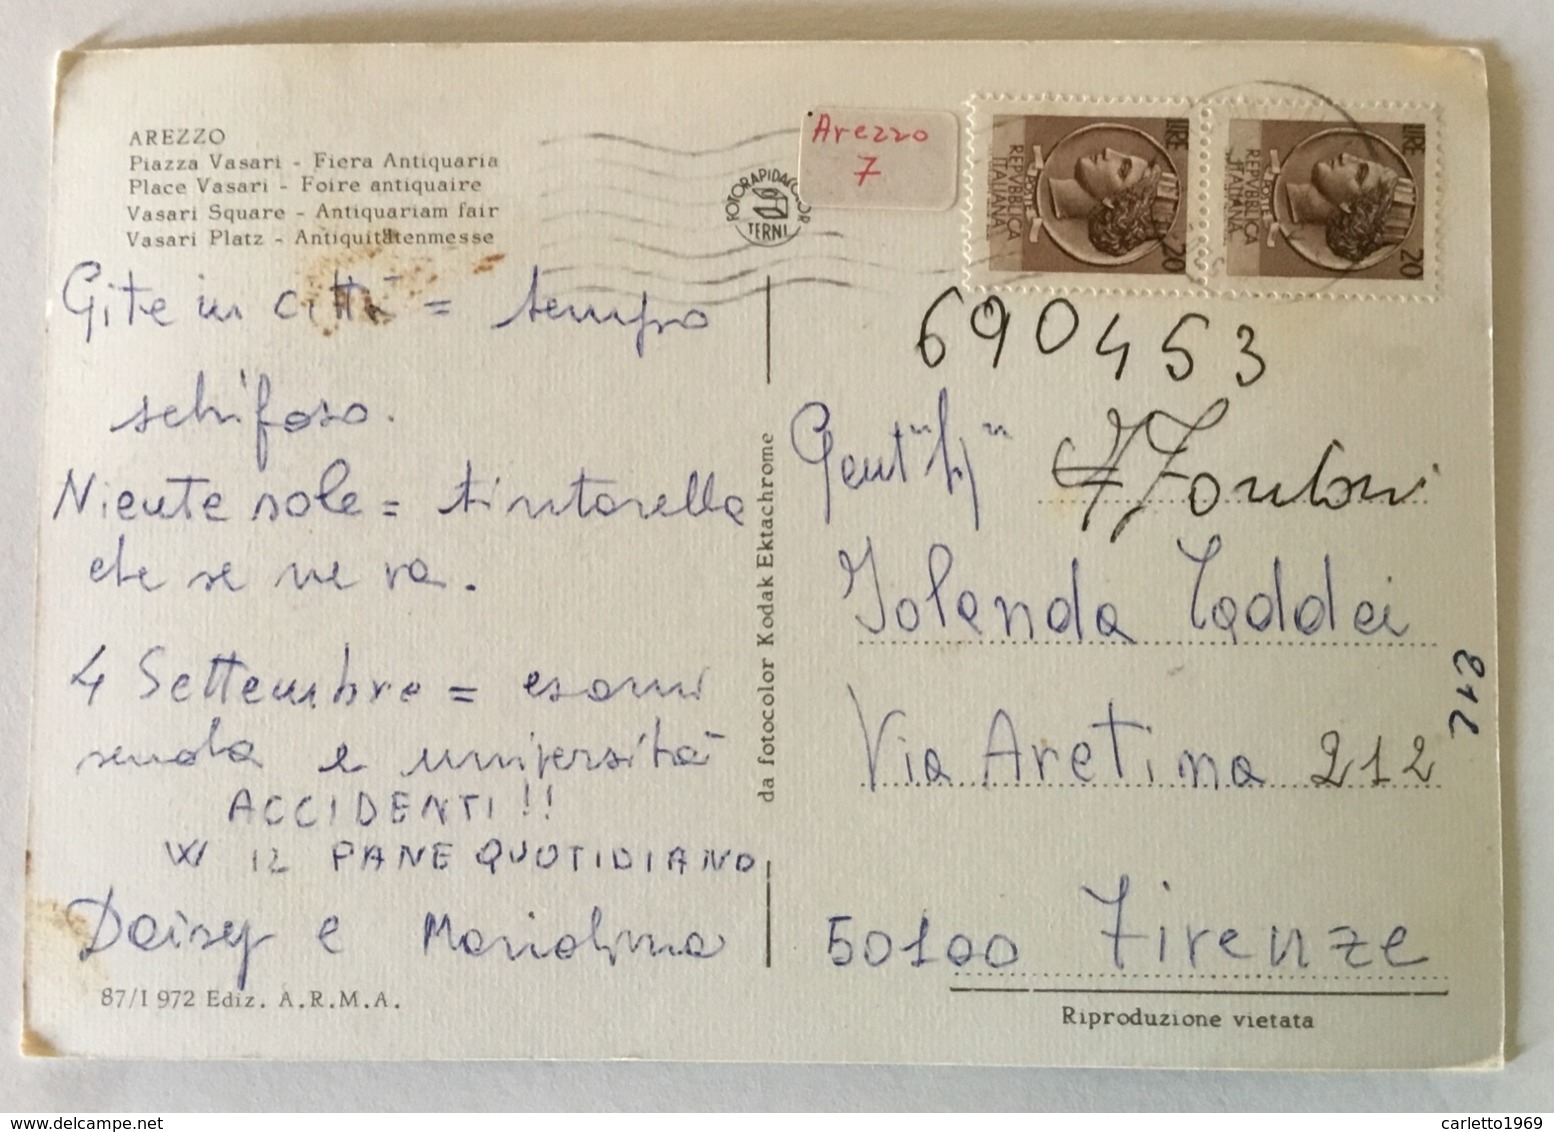 AREZZO
Piazza Vasari - Fiera Antiquaria
Place Vasari - Foire antiquaire
Vasari Square - Antiquariam fair
Vasari Platz - Antiquitätenmesse
FOTORAPIDACOLOR
TERNI
Arezzo
7
LIRE 20
REPVBBLICA
ITALIANA
POSTE
LIRE 20
REPVBBLICA
ITALIANA
POSTE
690453
Gite in città = tempo
schifoso.
Niente sole = tintarella
che se ne va.
4 Settembre = esami
scuola e università
ACCIDENTI!!
W IL PANE QUOTIDIANO
Daisy e Mariolina
87/1972 Ediz. A.R.M.A.
da fotocolor Kodak Ektachrome
Gent
Iolanda Taddei
Via Aretina 212
50100 Firenze
Riproduzione vietata
carletto1969